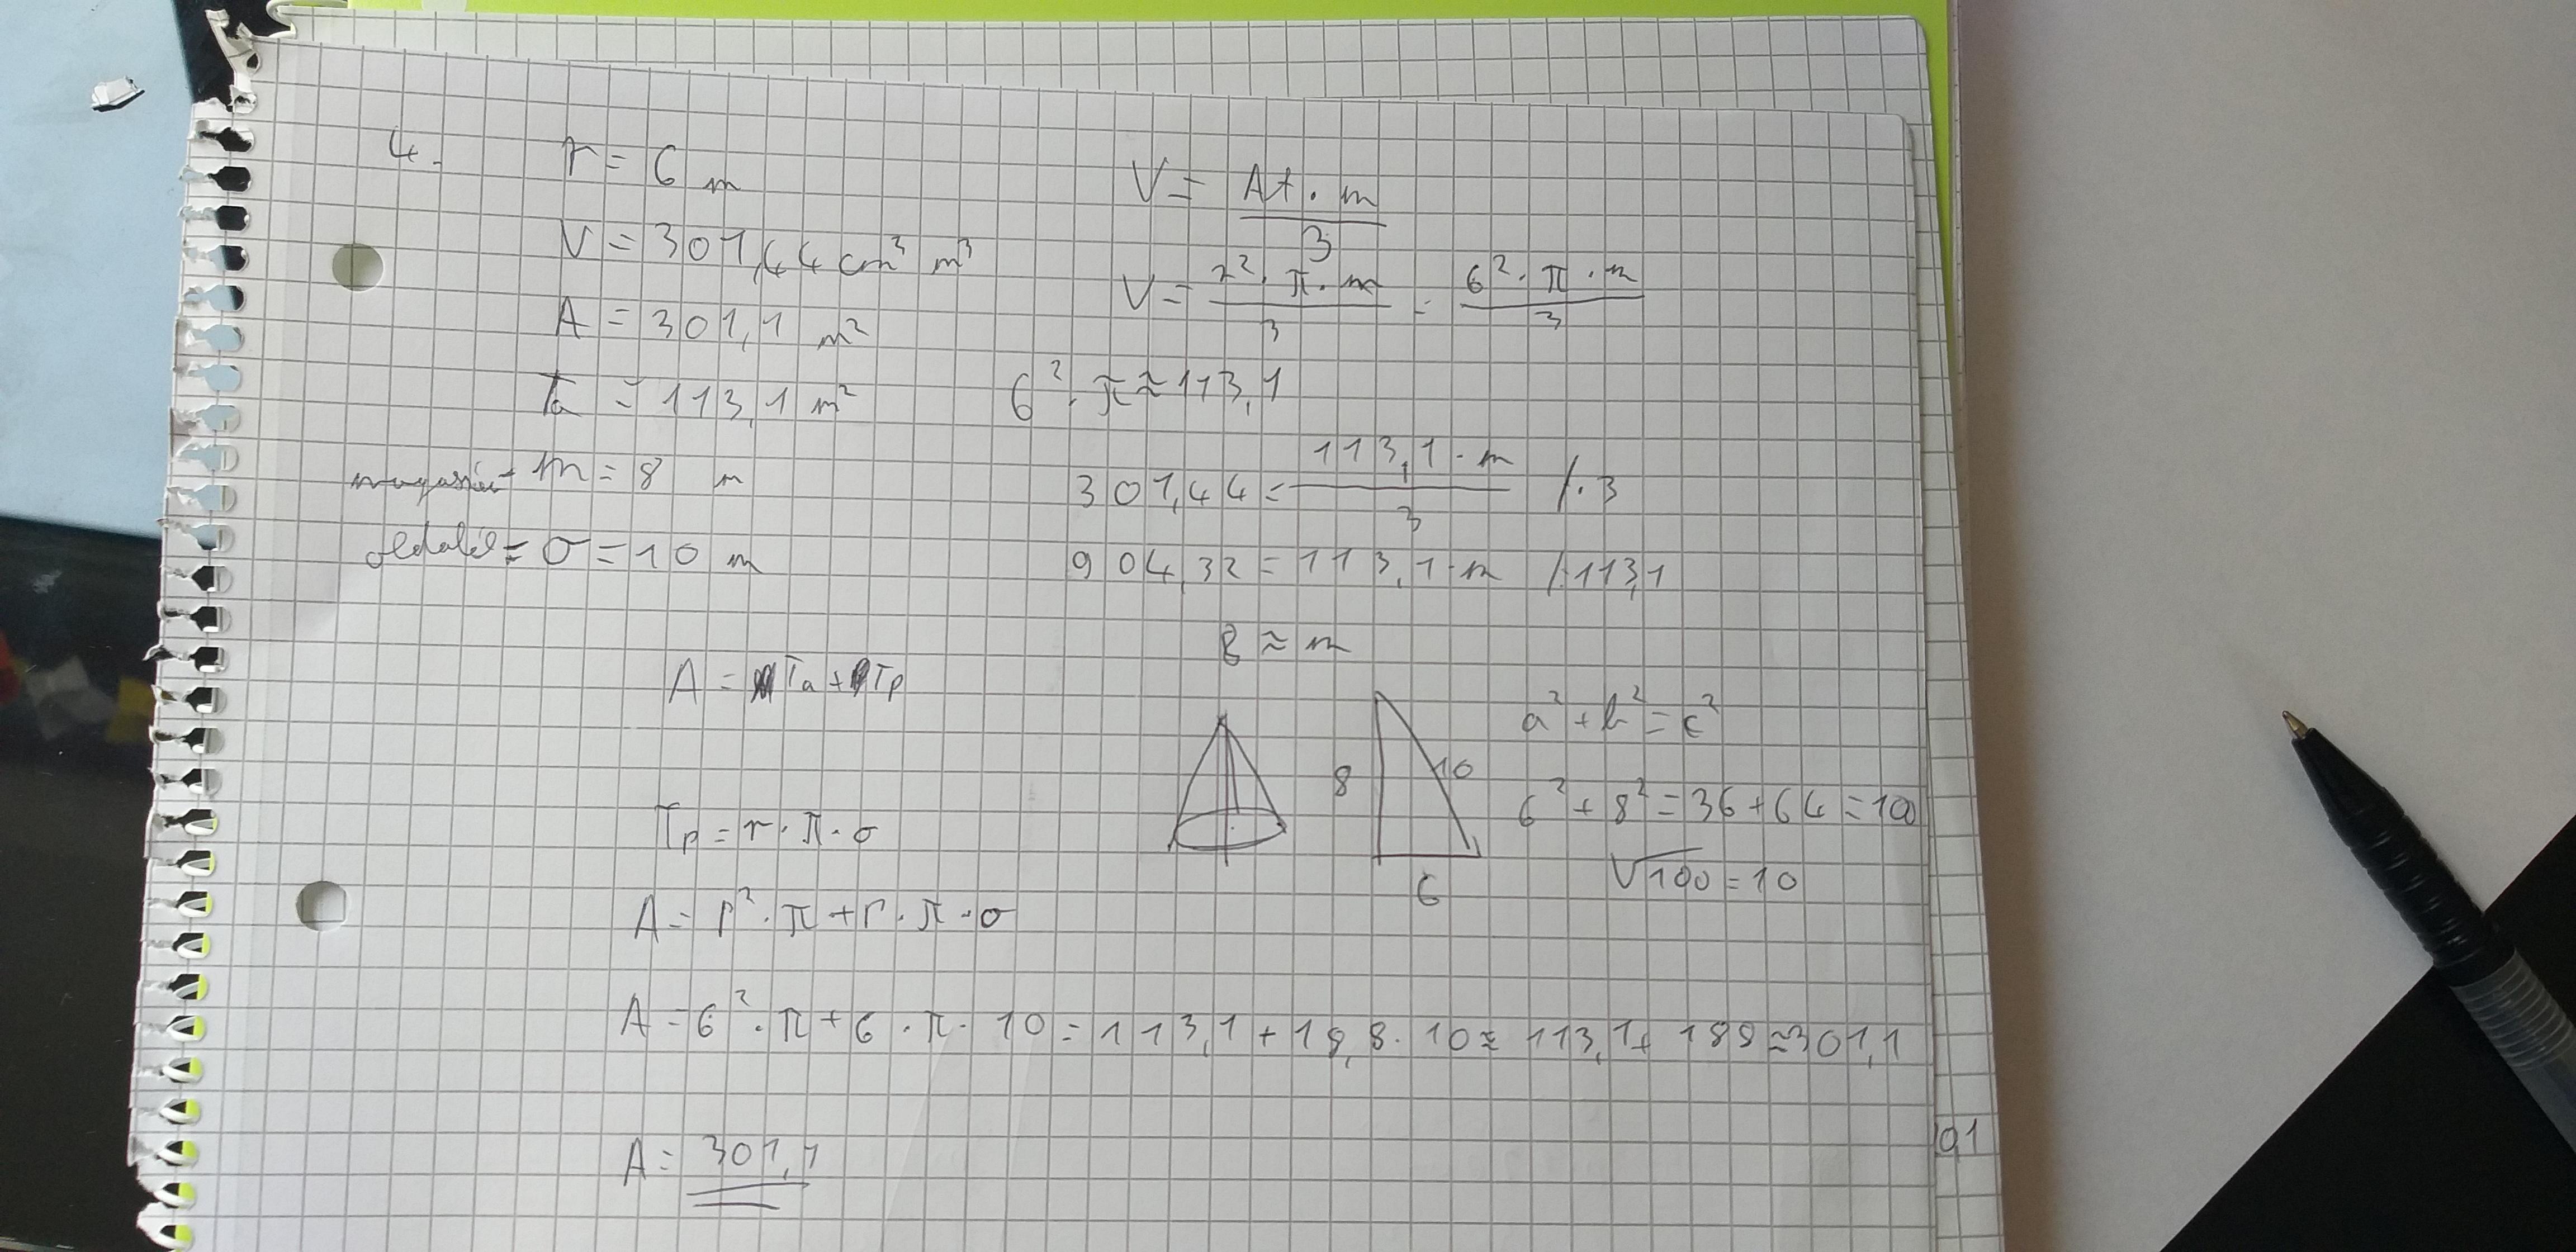 4.
r = 6 m
V = 301,44 cm³ m³
A = 301,1 m²
Ta = 113,1 m²
magasság m = 8 m
oldalél = σ = 10 m
V = At · m / 3
V = r² · π · m / 3 = 6² · π · m / 3
6² · π ≈ 113,1
301,44 = 113,1 · m / 3 /· 3
904,32 = 113,1 · m /:113,1
8 ≈ m
A = Ta + Tp
Tp = r · π · σ
A = r² · π + r · π · σ
8
10
6
a² + b² = c²
6² + 8² = 36 + 64 = 100
√100 = 10
A = 6² · π + 6 · π · 10 = 113,1 + 18,8 · 10 ≈ 113,1 + 188 ≈ 301,1
A = 301,1
01